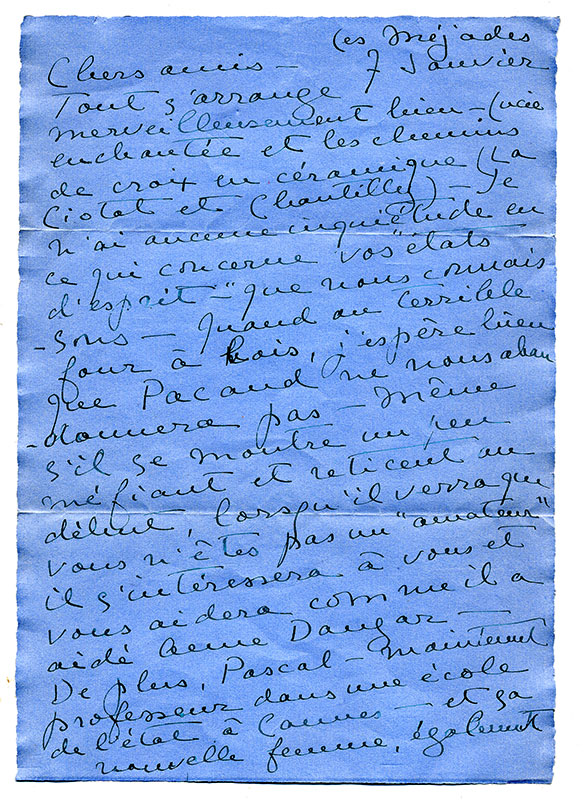 Les Méjades
Chers amis – 7 Janvier
Tout s'arrange
merveilleusement bien – Lucie
enchantée et les chemins
de croix en céramique (La
Ciotat et Chantilly) – Je
n'ai aucune inquiétude en
ce qui concerne vos "états
d'esprit" que nous connais
-sons – Quand au terrible
four à bois, j'espère bien
que Pacaud ne nous aban
-donnera pas – Même
s'il se montre un peu
méfiant et reticent au
début, lorsqu'il verra que
vous n'êtes pas un "amateur"
il s'intéressera à vous et
vous aidera comme il a
aidé Anne Dangar –
De plus, Pascal – maintenant
professeur dans une école
de l'état à Cannes – et sa
nouvelle femme, également